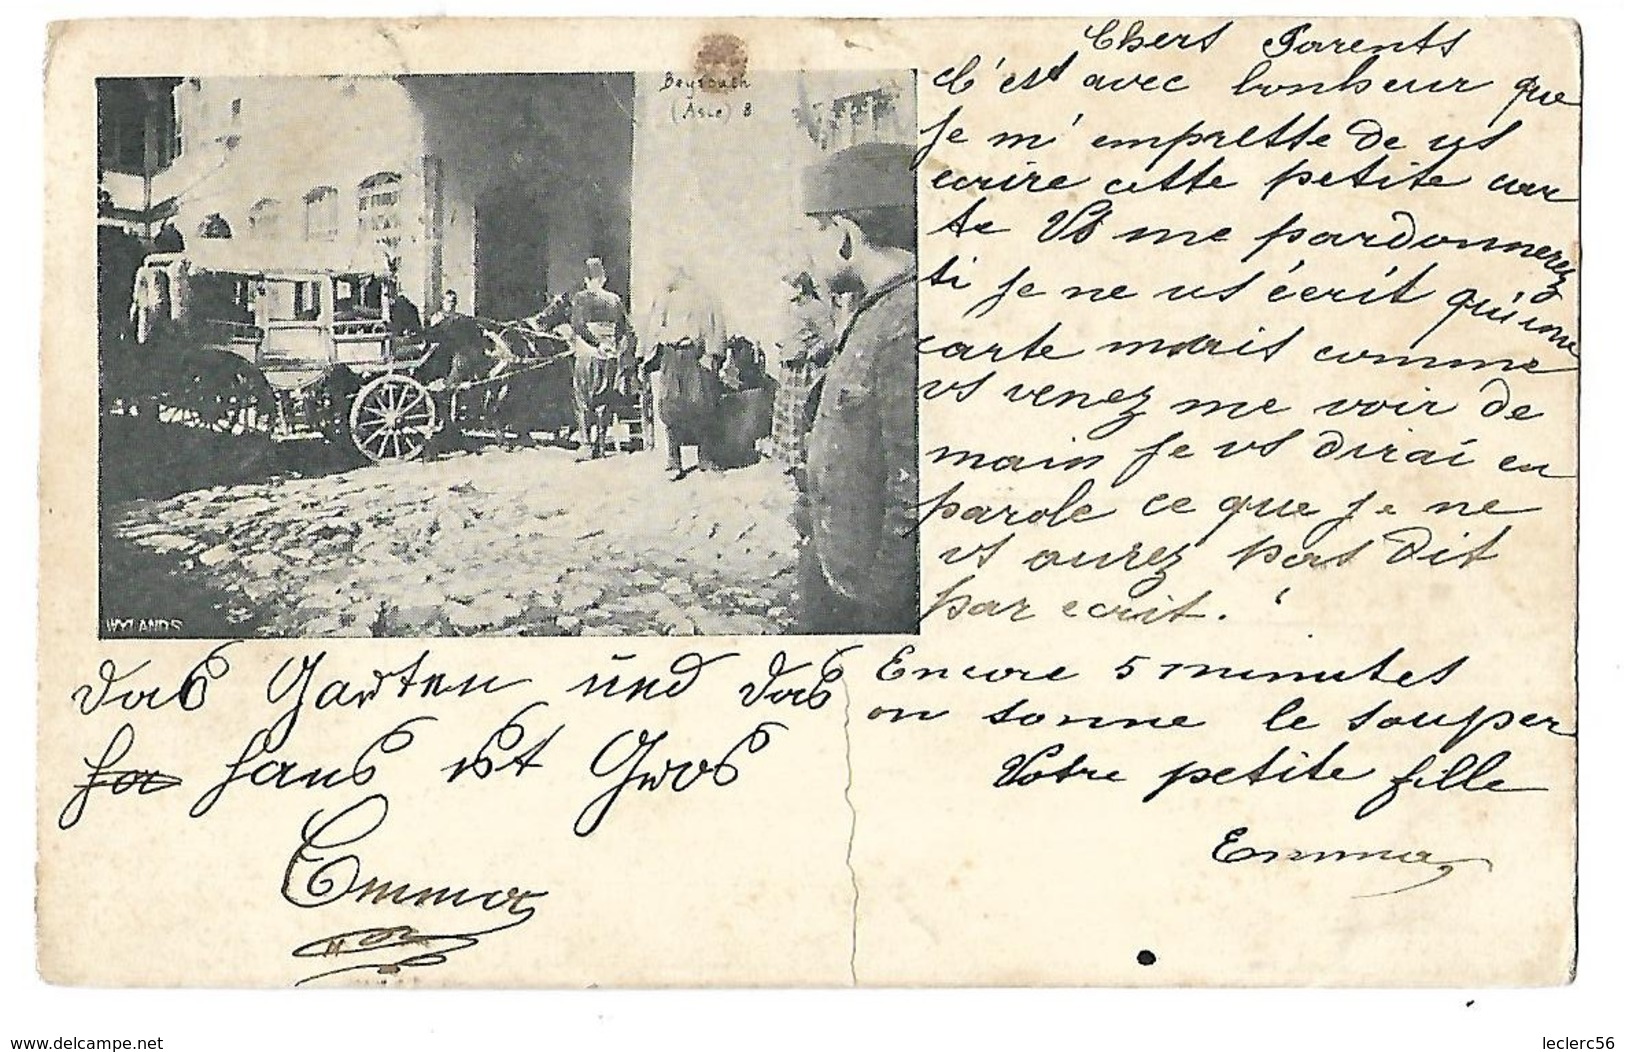 Chers Parents
C'est avec bonheur que
je m'emprette de vs
ecrire cette petite car
te Vs me pardonnerez
si je ne vs écrit qu'une
carte mais comme
vs venez me voir de
main je vs dirai en
parole ce que je ne
vs aurez pas dit
par ecrit.
Encore 5 minutes
on sonne le souper
Votre petite fille
Emma
Beyrouth
(Asie) 8
WYLANDS
das Garten und das
haus ist Gros
Emma
www.delcampe.net
leclerc56